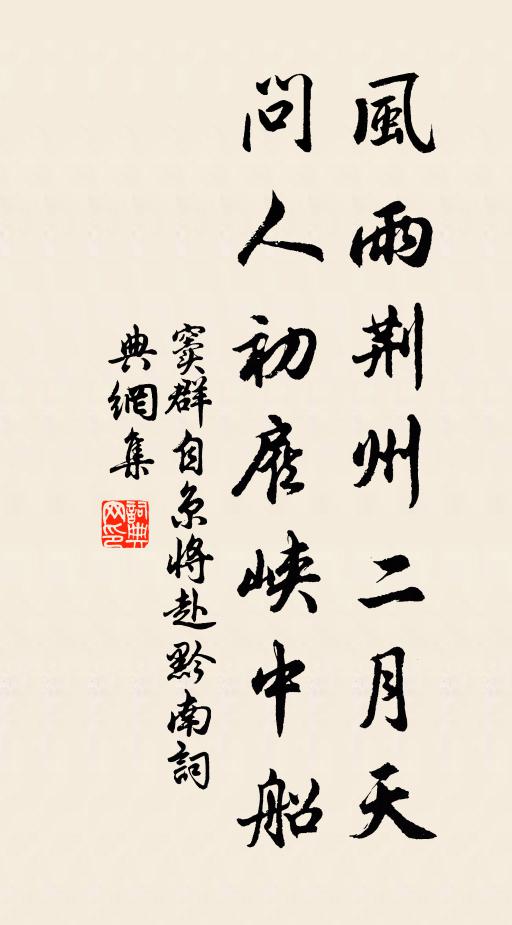 風雨荆州二月天
問人初雇峽中船
竇群自京將赴黔南詞
典網集
詞典網印